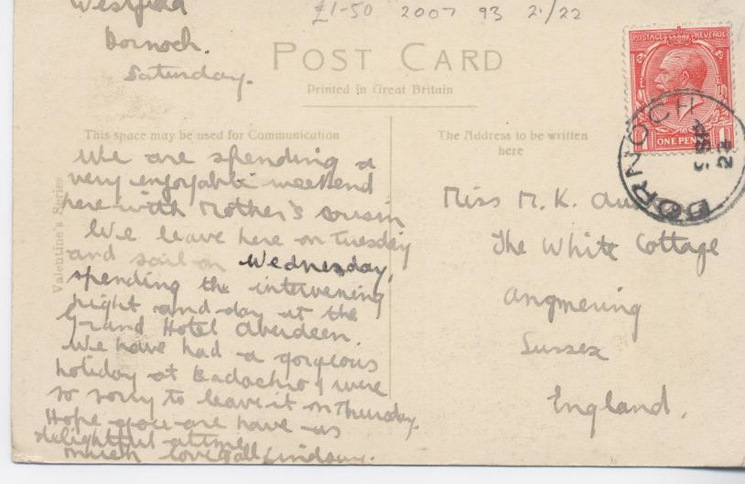 Westfield
Dornoch.
Saturday.
£1-50 2007 93
POST CARD
Printed in Great Britain
POSTAGE REVENUE
ONE PENNY
DORNOCH
This space may be used for Communication
The Address to be written
here
Valentine's Series
We are spending a
very enjoyable weekend
here with Mother's cousin
We leave here on Tuesday
and sail on Wednesday,
spending the intervening
night and day at the
Grand Hotel Aberdeen.
We have had a gorgeous
holiday at & were
so sorry to leave it on Thursday.
Hope you are have us
delightful
much love all Lindsay.
Miss M. K.
The White Cottage
Angmering
Sussex
England.